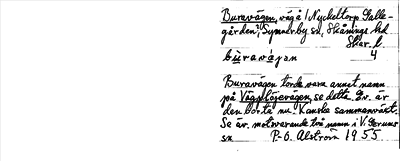 Buravägen, väg å 1 Nyckeltorp Galle-
gården, Synnerby sn, Skånings hd
Skar. l.
bùrawä́jən 4
Buravägen torde vara annat namn
på Väglösevägen, se detta. Ev. är
den borta nu. Kanske sammanväxt.
Se äv. motsvarande två namn i V. Gerums
sn P-O. Alström 1955